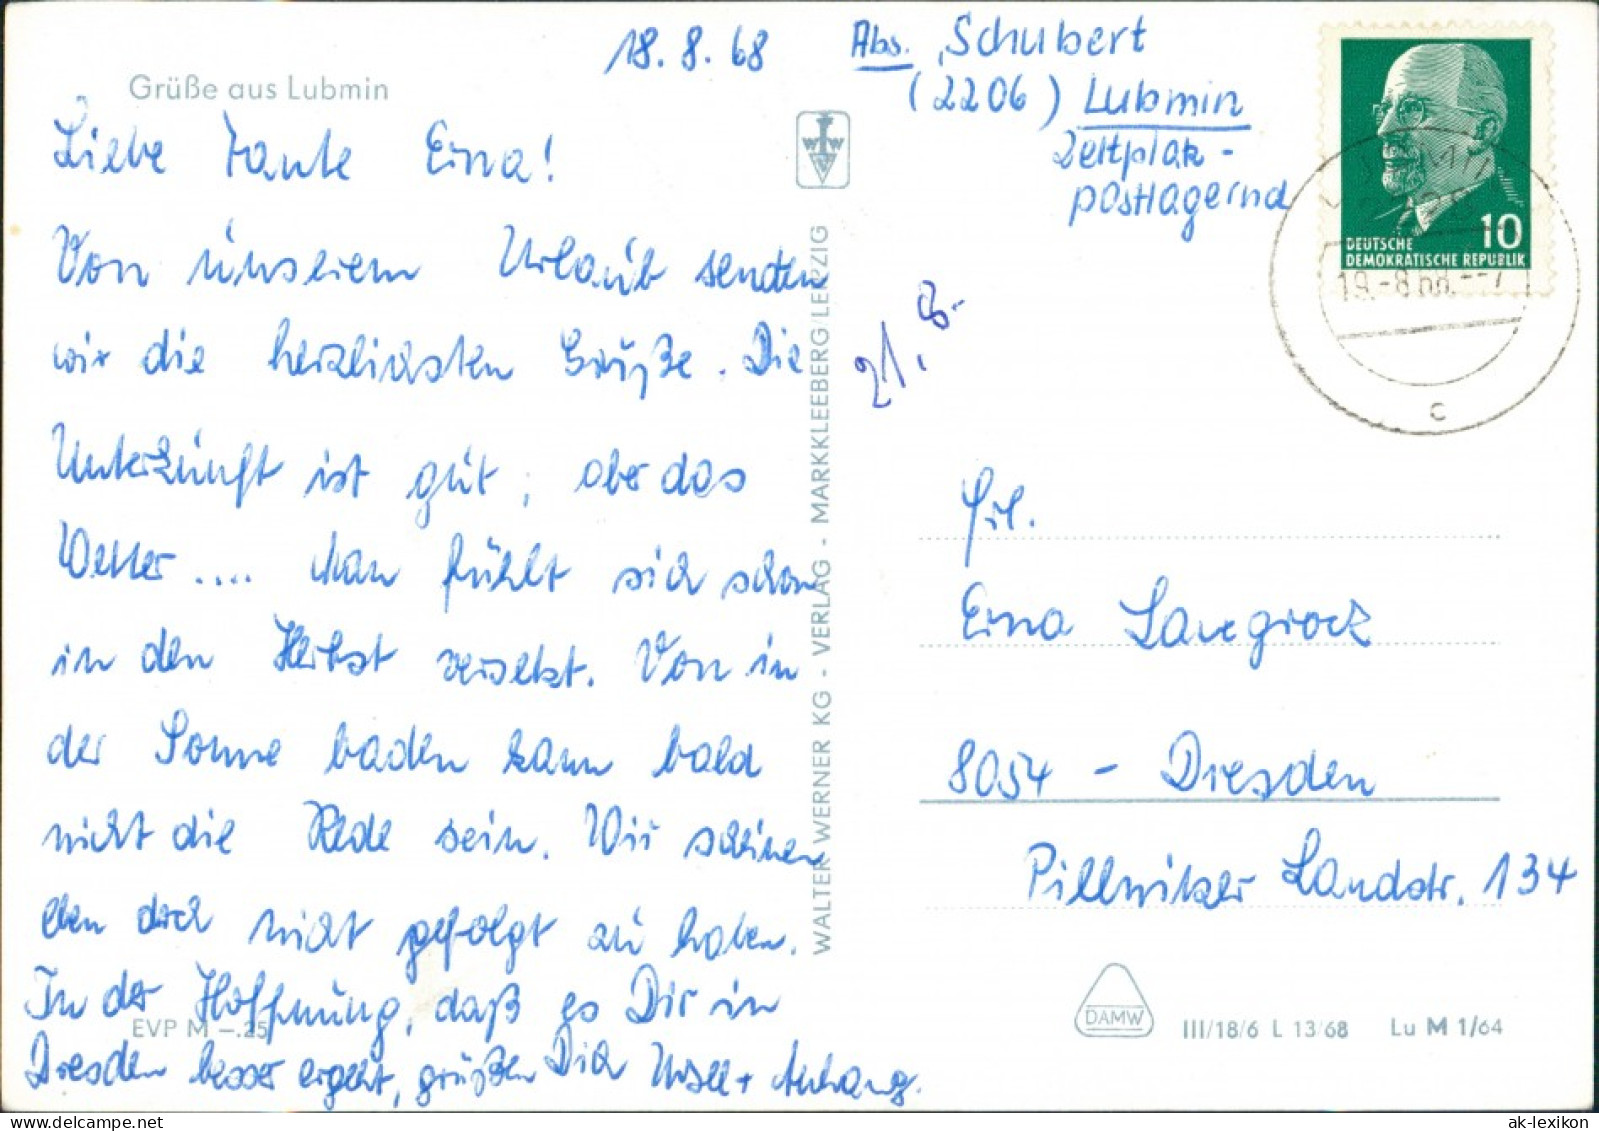 18.8.68
Abs. Schubert
(2206) Lubmin
Zeltplatz -
postlagernd
Grüße aus Lubmin
Liebe Tante Erna!
Von unserem Urlaub senden
wir die herzlichsten Grüße. Die
Unterkunft ist gut, aber das
Wetter .... Man fühlt sich schon
in den Herbst versetzt. Von in
der Sonne baden kann bald
nicht die Rede sein. Wir scheinen
eben doch nicht gefolgt zu haben.
In der Hoffnung, daß es Dir in
Dresden besser ergeht, grüßen Dich Ursel + Anhang.
EVP M -.25
WALTER WERNER KG - VERLAG - MARKKLEEBERG/LEIPZIG
W W V
21.8.
10
DEUTSCHE
DEMOKRATISCHE REPUBLIK
LUBMIN
19.-8.68.--7
c
Frl.
Erna
8054 - Dresden
Pillnitzer Landstr. 134
DAMW
III/18/6 L 13/68 Lu M 1/64
ak-lexikon.com